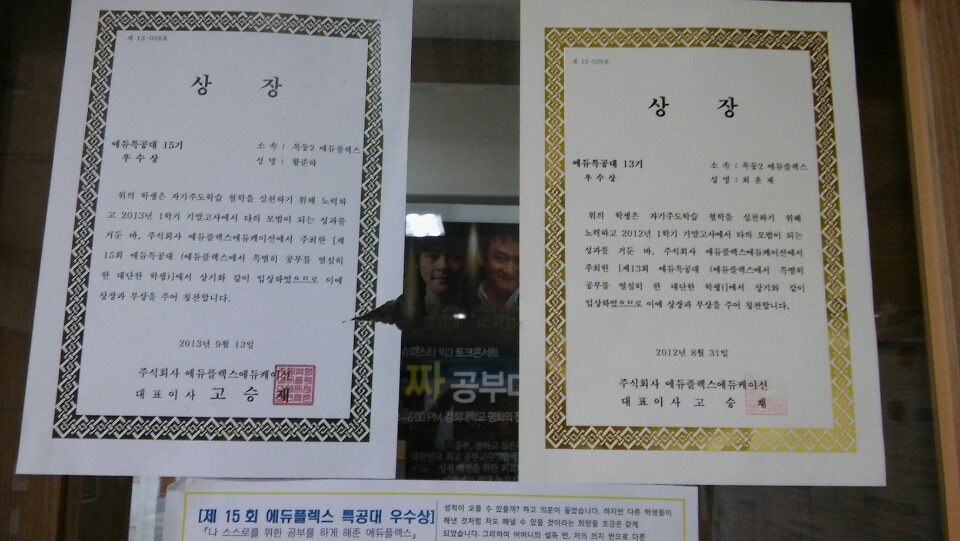 제 13-038호
상 장
에듀특공대 15기
우수상
소 속 : 목동2 에듀플렉스
성 명 : 황준하
위의 학생은 자기주도학습 철학을 실천하기 위해 노력하
고 2013년 1학기 기말고사에서 타의 모범이 되는 성과를
거둔 바, 주식회사 에듀플렉스에듀케이션에서 주최한 [제
15회 에듀특공대 (에듀플렉스에서 특별히 공부를 열심히
한 대단한 학생)]에서 상기와 같이 입상하였으므로 이에
상장과 부상을 주어 칭찬합니다.
2013년 9월 13일
주식회사 에듀플렉스에듀케이션
대표이사 고 승 재
제 12-029호
상 장
에듀특공대 13기
우수상
소 속 : 목동2 에듀플렉스
성 명 : 최 윤 재
위의 학생은 자기주도학습 철학을 실천하기 위해
노력하고 2012년 1학기 기말고사에서 타의 모범이 되는
성과를 거둔 바, 주식회사 에듀플렉스에듀케이션에서
주최한 [제13회 에듀특공대 (에듀플렉스에서 특별히
공부를 열심히 한 대단한 학생)]에서 상기와 같이
입상하였으므로 이에 상장과 부상을 주어 칭찬합니다.
2012년 8월 31일
주식회사 에듀플렉스에듀케이션
대표이사 고 승 재
토크콘서트
짜 공부
6:00 PM 경희대학교 평화의 전
공부, 잘하고 싶은
대한민국 최고 공부고수
성적 향상을 위한 최고
[제 15 회 에듀플렉스 특공대 우수상]
『나 스스로를 위한 공부를 하게 해준 에듀플렉스』
성적이 오를 수 있을까? 하고 의문이 들었습니다. 하지만 다른 학생들이
해낸 것처럼 저도 해낼 수 있을 것이라는 희망을 조금은 갖게
되었습니다. 그리하여 어머니의 설득 반, 저의 의지 반으로 다른